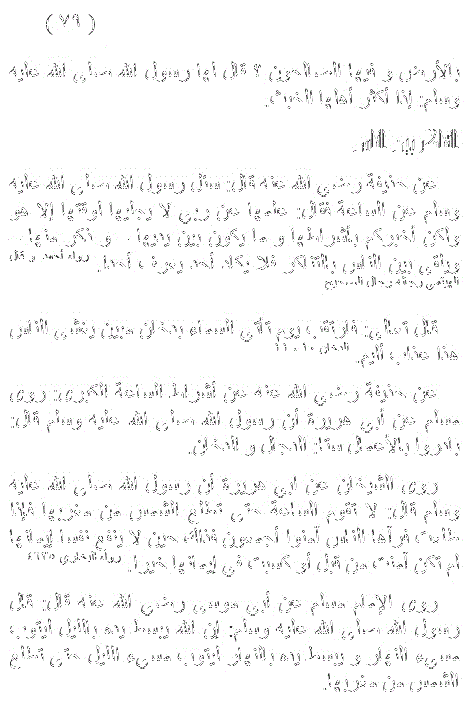 ( ٧٩ )
بالأرض و فيها الصالحون ؟ قال لها رسول الله صلى الله عليه
وسلم: إذا أكثر أهلها الخبث.
عن حذيفة رضي الله عنه قال: سئل رسول الله صلى الله عليه
وسلم عن الساعة فقال: علمها عن ربي لا يجليها لوقتها إلا هو
ولكن أخبركم بأشراطها و ما يكون بين يديها ... و ذكر منها ...
ويلقى بين الناس بالتناكر فلا يكاد أحد يعرف أحدا. رواه أحمد و قال
الهيثمي رجاله رجال الصحيح
قال تعالى: فارتقب يوم تأتي السماء بدخان مبين يغشى الناس
هذا عذاب أليم. الدخان ١٠ـ١١
عن حذيفة رضي الله عنه عن أشراط الساعة الكبرى: روى
مسلم عن أبي هريرة أن رسول الله صلى الله عليه وسلم قال:
بادروا بالأعمال ستا: الدجال و الدخان.
روى الشيخان عن أبي هريرة أن رسول الله صلى الله عليه
وسلم قال: لا تقوم الساعة حتى تطلع الشمس من مغربها فإذا
طلعت فرآها الناس آمنوا أجمعون فذلك حين لا ينفع نفسا إيمانها
لم تكن آمنت من قبل أو كسبت في إيمانها خيرا. رواه البخاري ٤٦٣٥
روى الإمام مسلم عن أبي موسى رضي الله عنه قال: قال
رسول الله صلى الله عليه وسلم: إن الله يبسط يده بالليل ليتوب
مسيء النهار و يبسط يده بالنهار ليتوب مسيء الليل حتى تطلع
الشمس من مغربها.